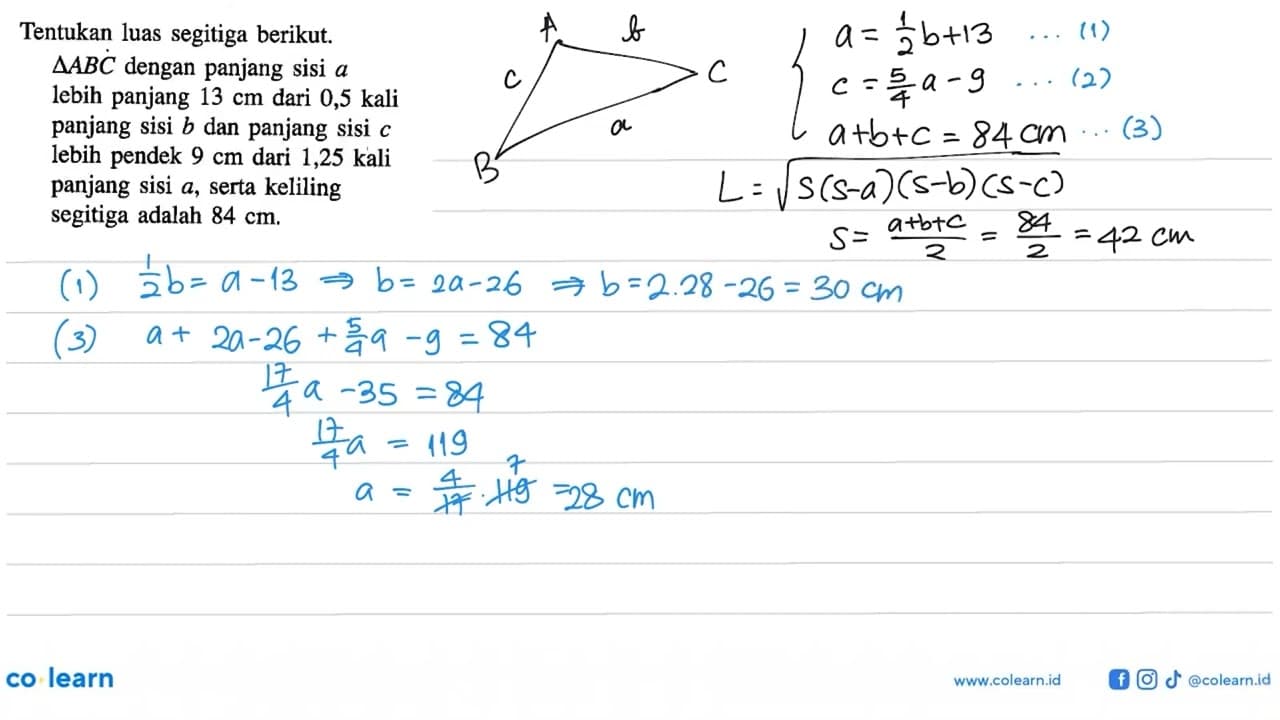 Tentukan luas segitiga berikut.
ΔABC dengan panjang sisi a
lebih panjang 13 cm dari 0,5 kali
panjang sisi b dan panjang sisi c
lebih pendek 9 cm dari 1,25 kali
panjang sisi a, serta keliling
segitiga adalah 84 cm.
A
b
c
C
a
B
a = 1/2 b + 13 ... (1)
c = 5/4 a - 9 ... (2)
a+b+c = 84 cm ... (3)
L = √s(s-a)(s-b)(s-c)
s = a+b+c/2 = 84/2 = 42 cm
(1) 1/2 b = a - 13 ⇒ b = 2a - 26 ⇒ b = 2.28 - 26 = 30 cm
(3) a + 2a - 26 + 5/4 a - 9 = 84
17/4 a - 35 = 84
17/4 a = 119
7
a = 4/17 . 119 = 28 cm
co learn
www.colearn.id
@colearn.id